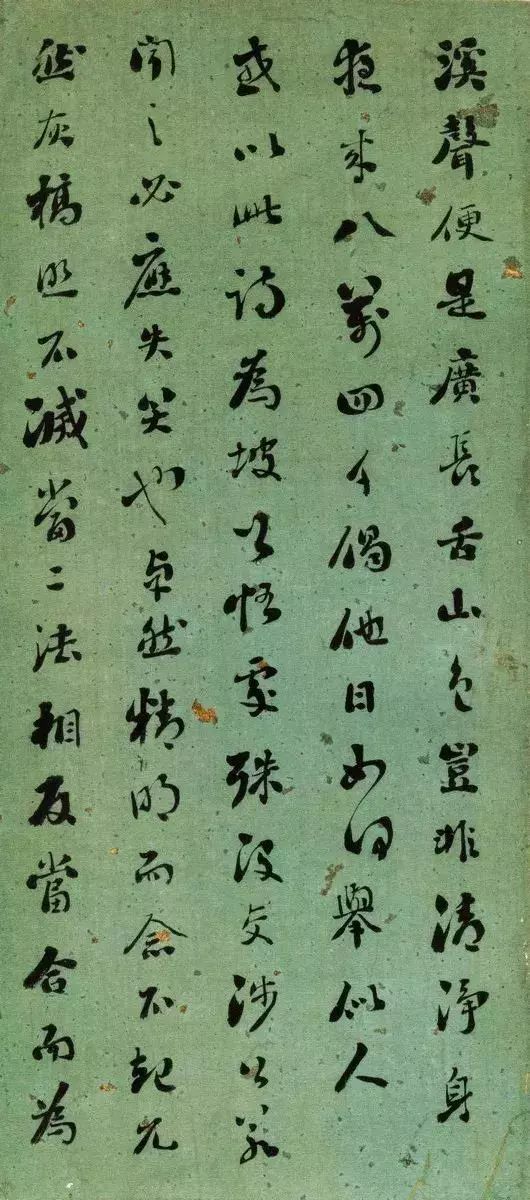 溪聲便是廣長舌山色豈非清淨身
夜来八萬四千偈他日如何舉似人
或以此詩為坡公悟處殊没交涉公若
聞之必應失笑也卓然精明而念不起兀
然灰槁照不滅當二法相反當合而為